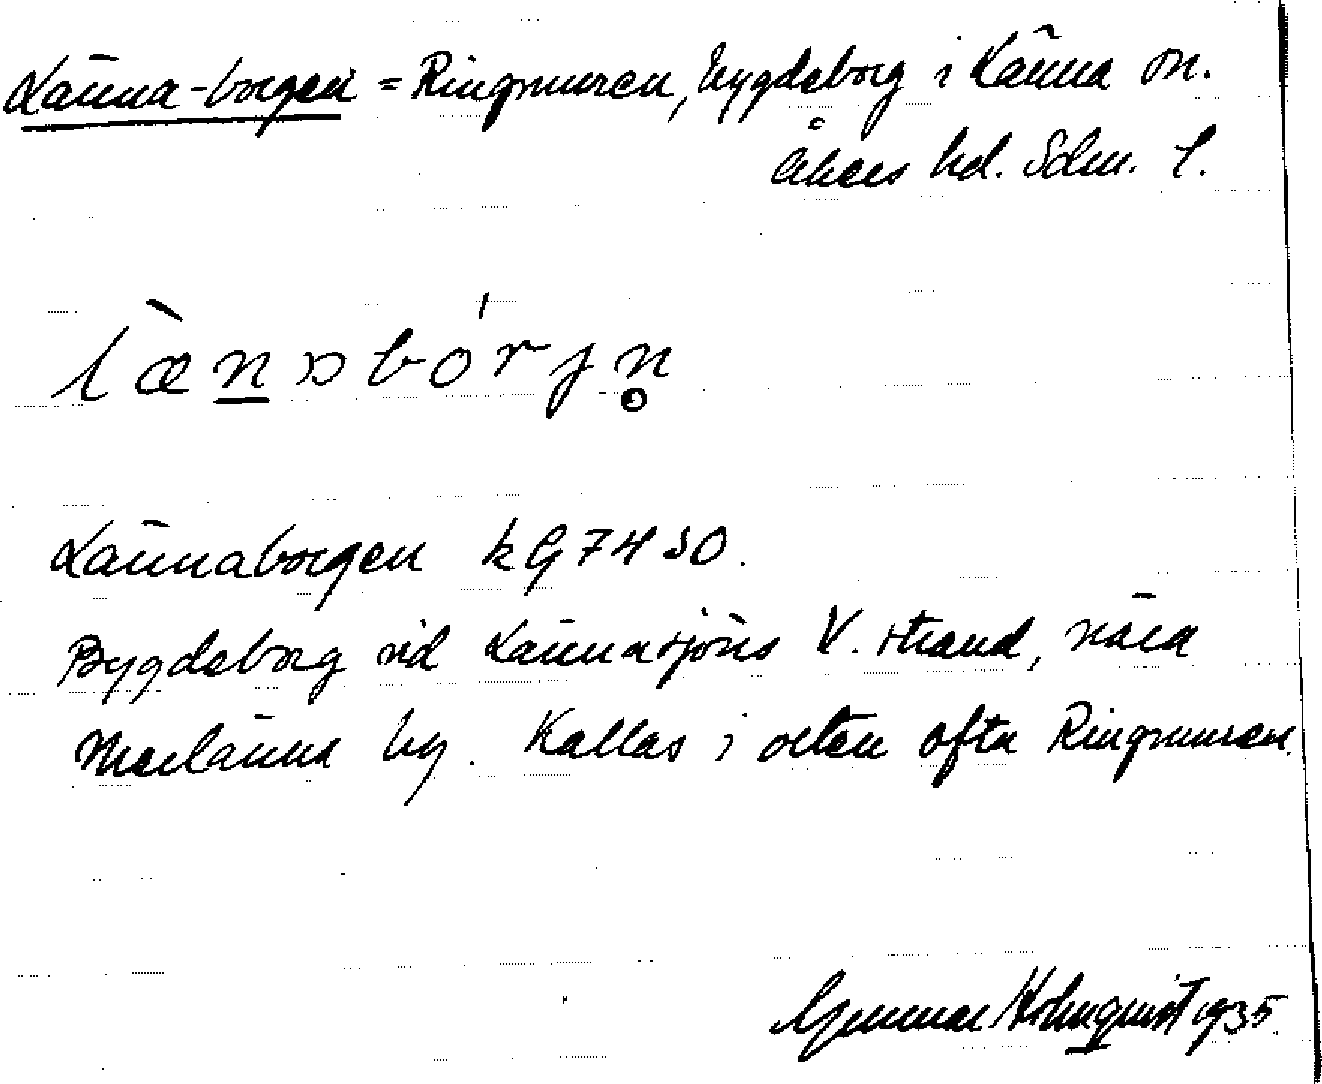 Länna-borgen = Ringmuren, bygdeborg i Länna sn.
Åkers hd. Sdm. l.
læ̀nabórjn̥
Lännaborgen kG 74 SO.
Bygdeborg vid Lännasjöns V. strand, nära
Merlänna by. Kallas i orten ofta Ringmuren.
Gunnar Holmquist 1935